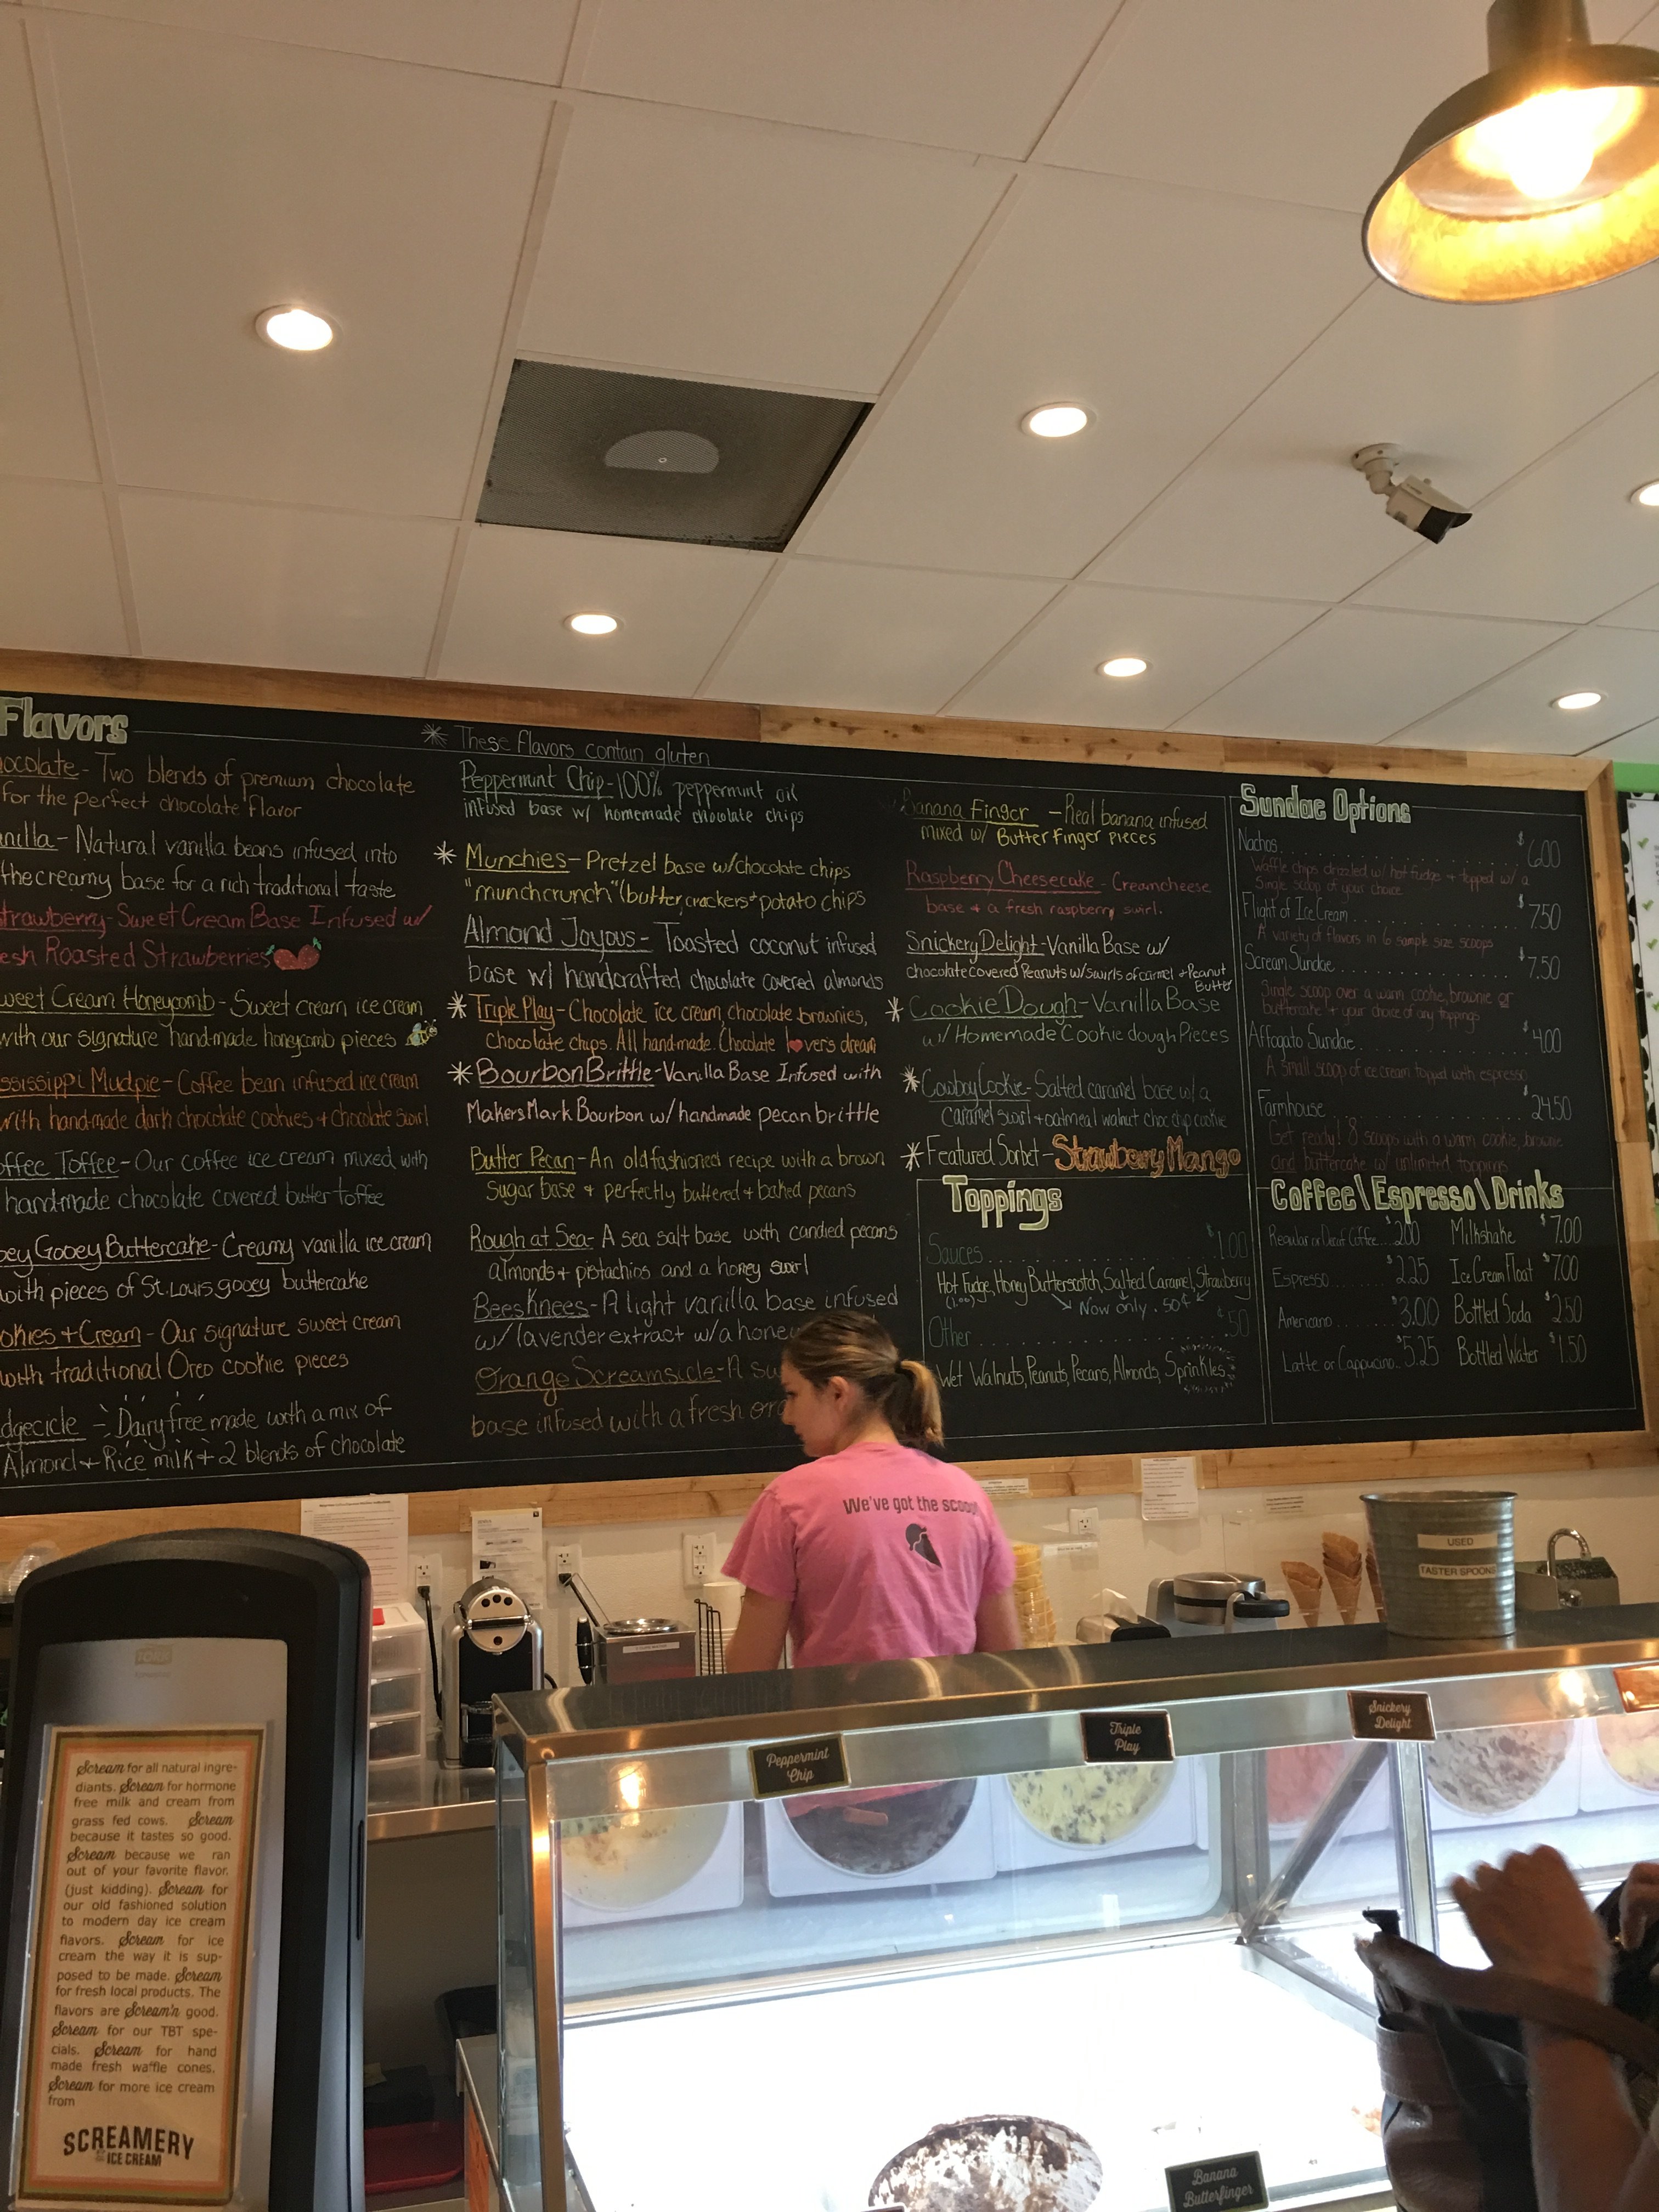 Flavors
ocolate - Two blends of premium chocolate
for the perfect chocolate flavor
anilla - Natural vanilla beans infused into
the creamy base for a rich traditional taste
trawberry - Sweet Cream Base Infused w/
esh Roasted Strawberries
weet Cream Honeycomb - Sweet cream ice cream
with our signature hand-made honeycomb pieces
ssissippi Mudpie - Coffee bean infused ice cream
with handmade dark chocolate cookies + chocolate swirl
offee Toffee - Our coffee ice cream mixed with
handmade chocolate covered butter toffee
oey Gooey Buttercake - Creamy vanilla ice cream
with pieces of St. Louis gooey buttercake
okies + Cream - Our signature sweet cream
with traditional Oreo cookie pieces
dgecicle - Dairy free made with a mix of
Almond + Rice milk + 2 blends of chocolate
* These flavors contain gluten
Peppermint Chip - 100% peppermint oil
infused base w/ homemade chocolate chips
* Munchies - Pretzel base w/chocolate chips
"munchcrunch" (butter, crackers + potato chips
Almond Joyous - Toasted coconut infused
base w/ handcrafted chocolate covered almonds
* Triple Play - Chocolate ice cream, chocolate brownies,
chocolate chips. All handmade. Chocolate lovers dream
* Bourbon Brittle - Vanilla Base Infused with
Makers Mark Bourbon w/ handmade pecan brittle
Butter Pecan - An old fashioned recipe with a brown
Sugar base + perfectly buttered + baked pecans
Rough at Sea - A sea salt base with candied pecans
almonds + pistachios and a honey swirl
Bees Knees - A light vanilla base infused
w/ lavender extract w/a hone
Orange Screamsicle - A
base infused with a fresh
Banana Finger - Real banana infused
mixed w/ Butter Finger pieces
Raspberry Cheesecake - Creamcheese
base + a fresh raspberry swirl.
Snickery Delight - Vanilla Base w/
chocolate covered Peanuts w/ swirls of carmel + Peanut
Butter
* Cookie Dough - Vanilla Base
w/ Homemade Cookie dough Pieces
* Cowboy Cookie - Salted caramel base w/ a
caramel swirl + oatmeal walnut choc chip cookie
* Featured Sorbet - Strawberry Mango
Toppings
Sauces $1.00
Hot Fudge, Honey, Butterscotch, Salted Caramel, Strawberry
(1.00) Now only .50¢
Other .50
Wet Walnuts, Peanuts, Pecans, Almonds, Sprinkles
Sundae Options
Nachos $6.00
Waffle chips drizzled w/ hot fudge + topped w/ a
Single scoop of your choice
Flight of Ice Cream $7.50
A variety of flavors in 6 sample size scoops
Scream Sundae $7.50
Single scoop over a warm cookie, brownie or
buttercake + your choice of any toppings
Affogato Sundae $4.00
A small scoop of ice cream topped with espresso
Farmhouse $24.50
Get ready! 8 scoops with a warm cookie, brownie
and buttercake w/ unlimited toppings
Coffee\Espresso\Drinks
Regular or Decaf Coffee $2.00 Milkshake $7.00
Espresso $2.25 Ice Cream Float $7.00
Americano $3.00 Bottled Soda $2.50
Latte or Cappucino $5.25 Bottled Water $1.50
We've got the scoop
USED
TASTER SPOONS
Peppermint
Chip
Triple
Play
Snickery
Delight
Banana
Butterfinger
TORK
Scream for all natural ingre-
diants. Scream for hormone
free milk and cream from
grass fed cows. Scream
because it tastes so good.
Scream because we ran
out of your favorite flavor.
(just kidding). Scream for
our old fashioned solution
to modern day ice cream
flavors. Scream for ice
cream the way it is sup-
posed to be made. Scream
for fresh local products. The
flavors are Scream'n good.
Scream for our TBT spe-
cials. Scream for hand
made fresh waffle cones.
Scream for more ice cream
from
SCREAMERY
ICE CREAM